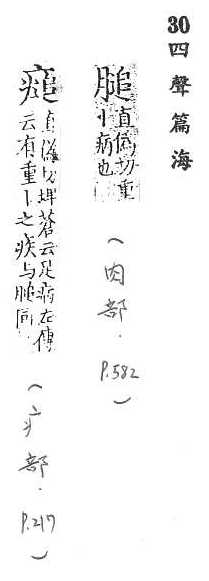 30 四聲篇海
膇
直偽切重
丨病也
（肉部．P.582）
直偽切埤蒼云足病左傳
云有重丨之疾与膇同
（疒部．P.217）